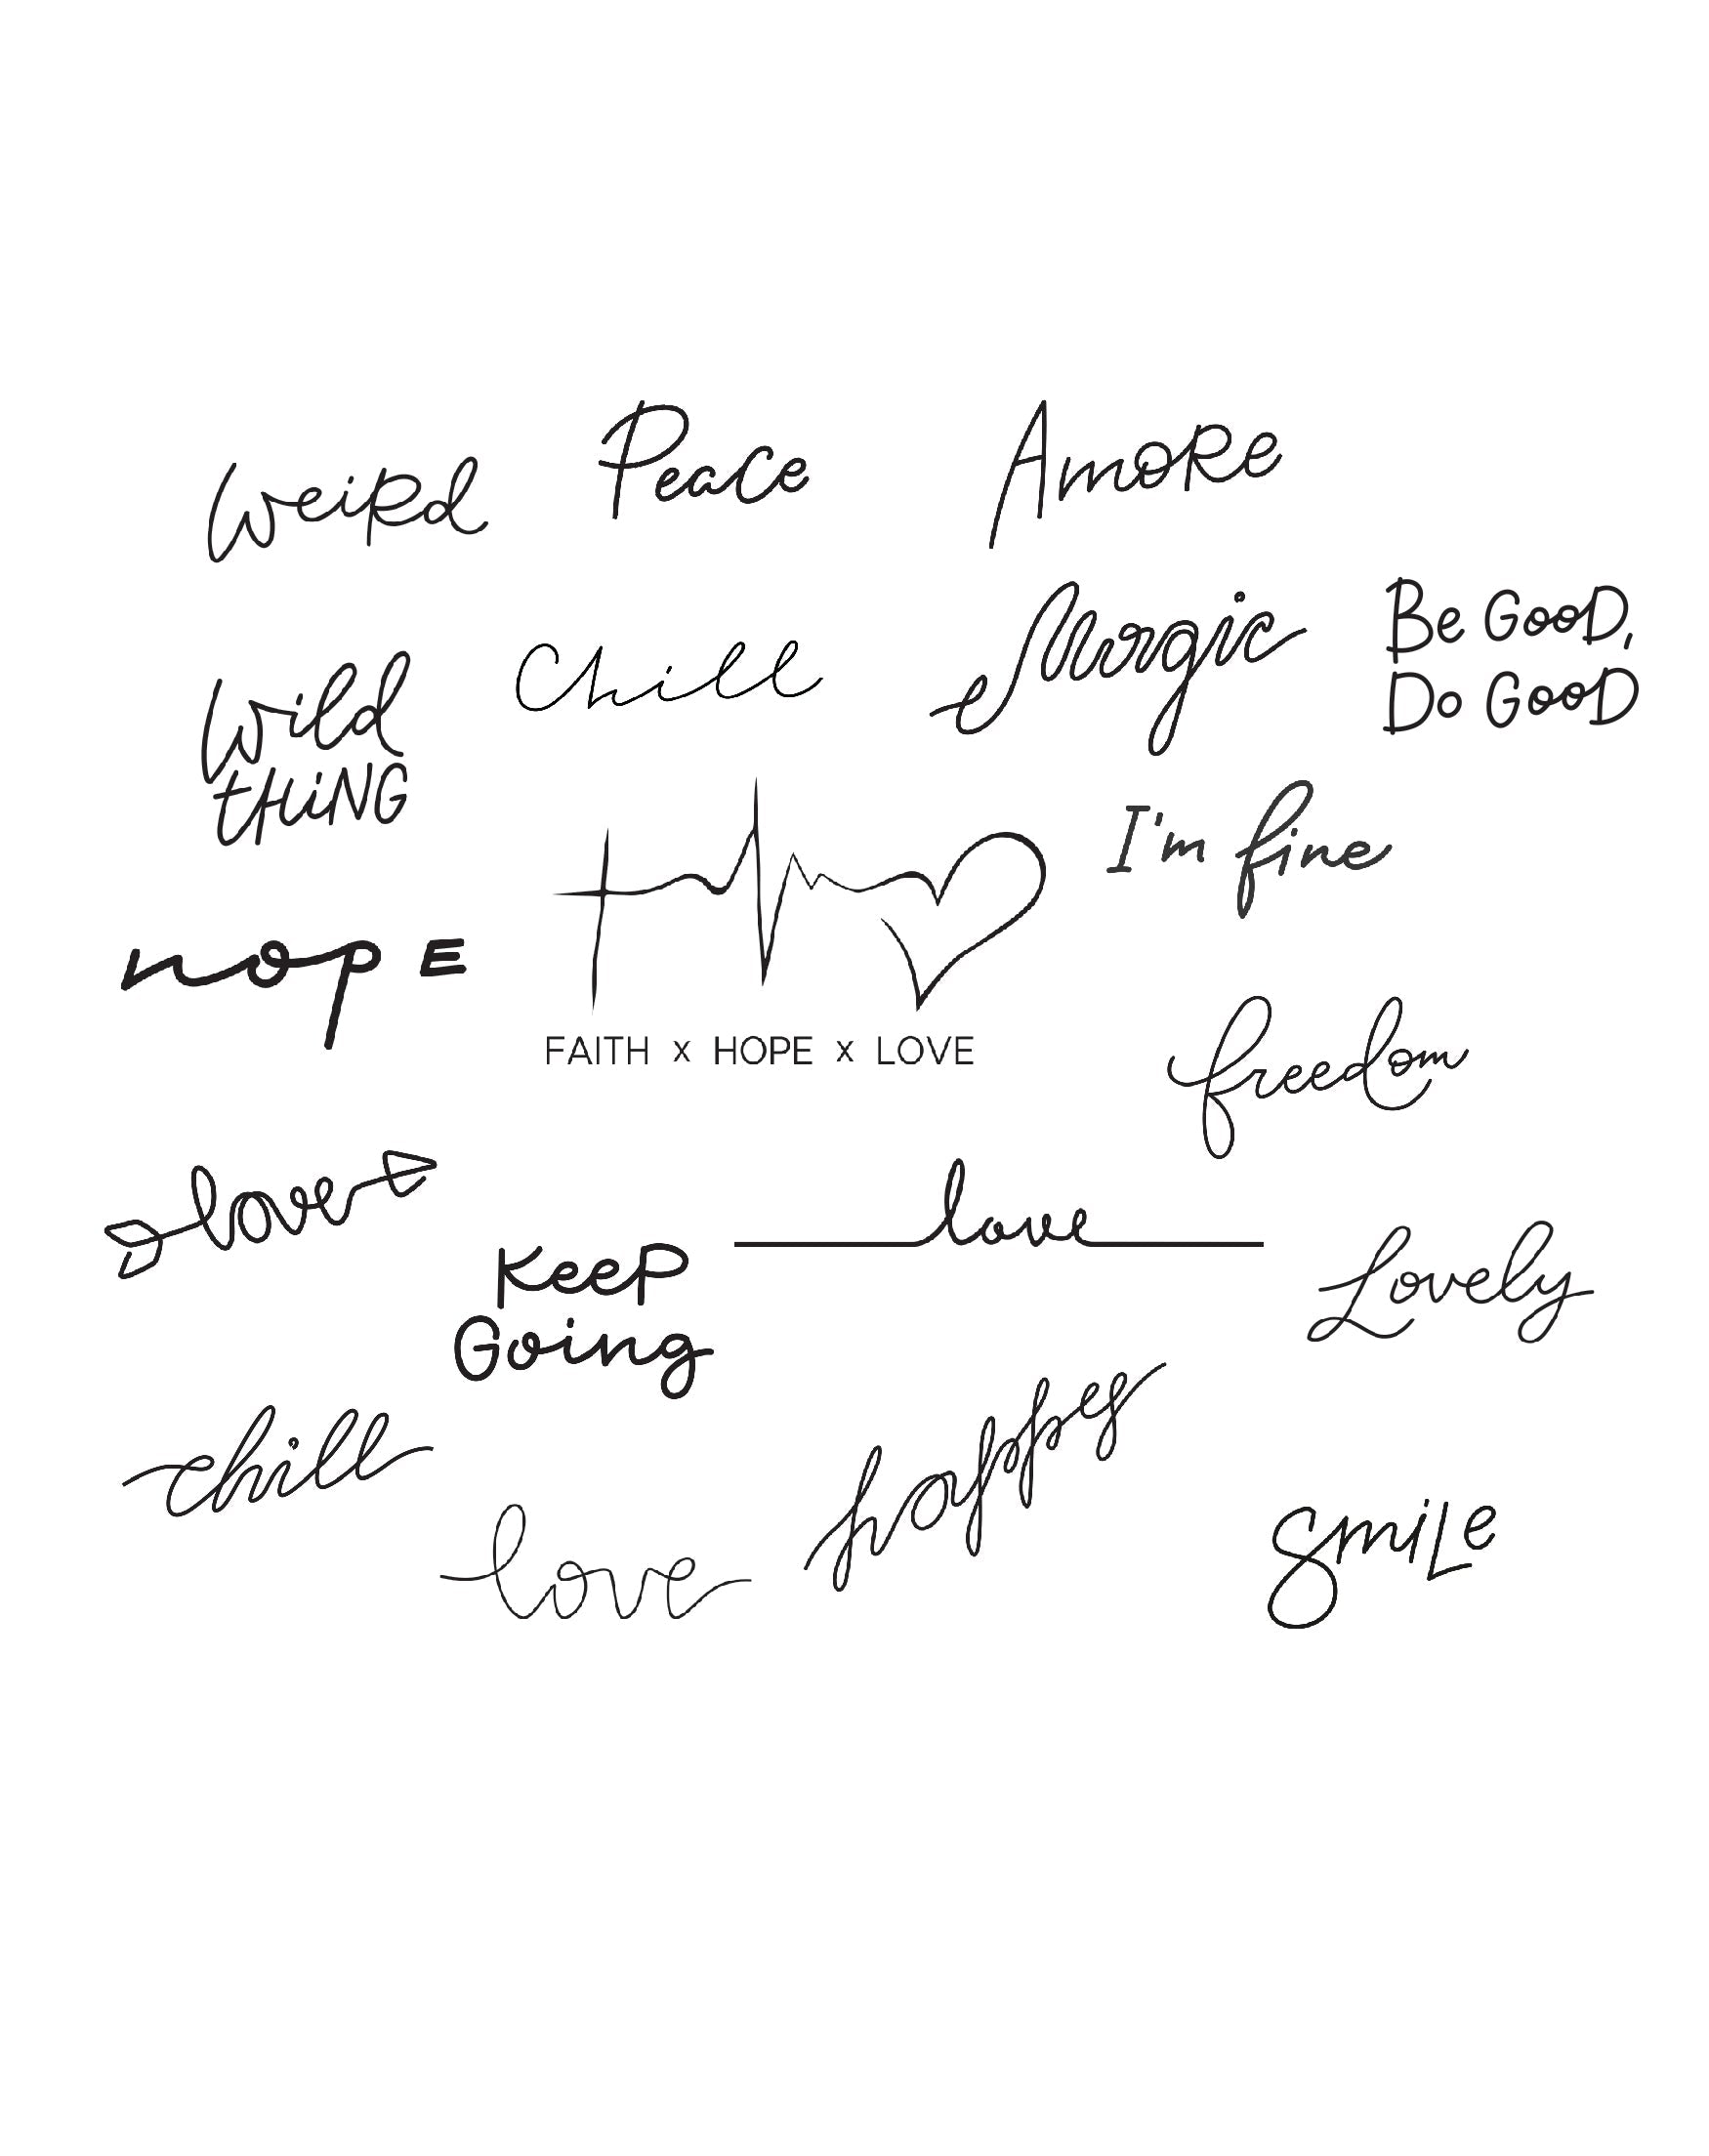 Weird
Peace
Amore
Wild
thiNG
Chill
Magic
Be GooD,
Do GooD
I'm fine
nope
FAITH x HOPE x LOVE
freedom
love
Keep
Going
love
Lovely
chill
love
happy
Smile